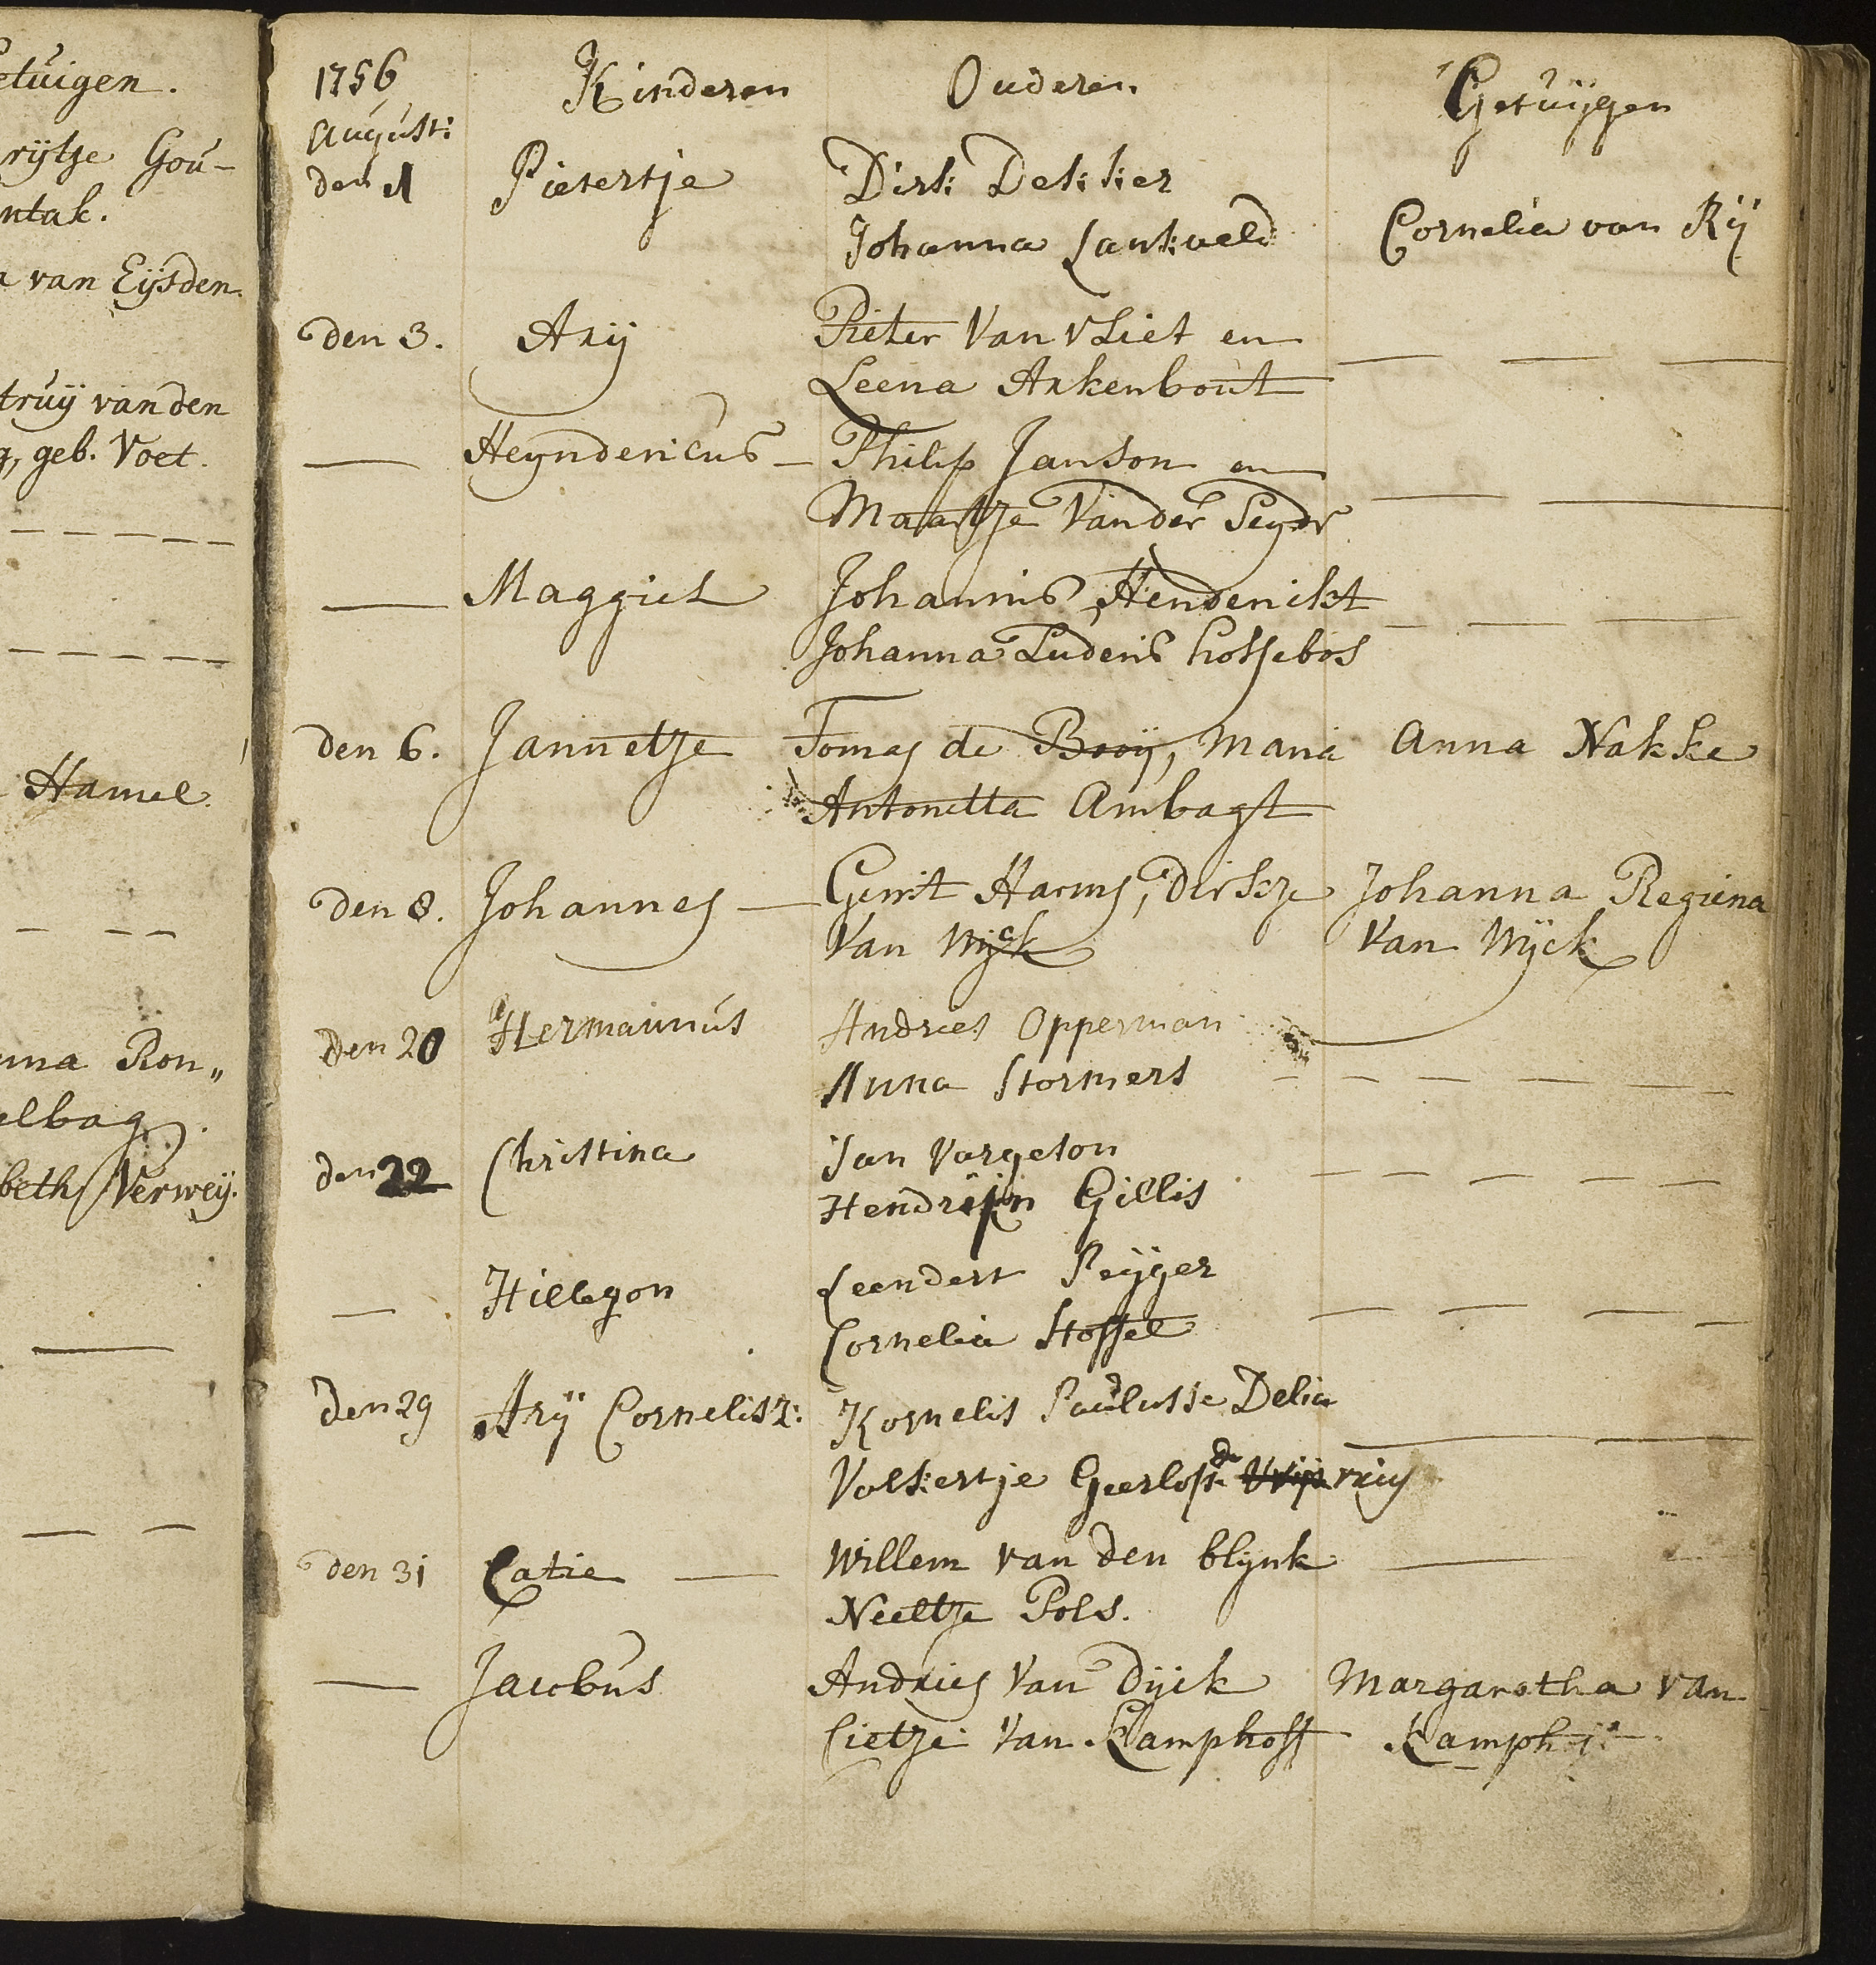 etuigen.
rijtje Gou-
ntak.
a van Eijsden.
truij van den
geb. Voet.
Hamel.
nna Ron„
elbag.
beth Verweij.
1756 Kinderen Ouderen Getuijgen
August:
den 1 Pietertje Dirk Dekker
Johanna Lankveld Cornelia van Rij
den 3. Arij Pieter Van Vliet en
Leena Arkenbout
Heyndericus Philip Janson en
Maartje Van der
Maggiel Johannis Henderikt
Johanna Luderis hotsebos
den 6. Jannetje Tomas de Booij, Maria Anna Nakke
Antonetta Ambagt
den 8. Johannes Gerrit Harms, Dirkje Johanna Regiena
Van Wijck Van Wijck
den 20 Hermannus Andries Opperman
Anna Stormers
den 22 Christina Jan Vargelon
Hendrijn Gillis
Hillegon Leendert Reijger
Cornelia Stoffel
den 29 Arij Cornelisz: Kornelis Paulusse Delia
Volkertje Geerlofs de
den 31 Catie Willem van den blijnk
Neeltje Pols.
Jacobus Andries Van Dijck Margaretha van
Cietje Van Kamphoff